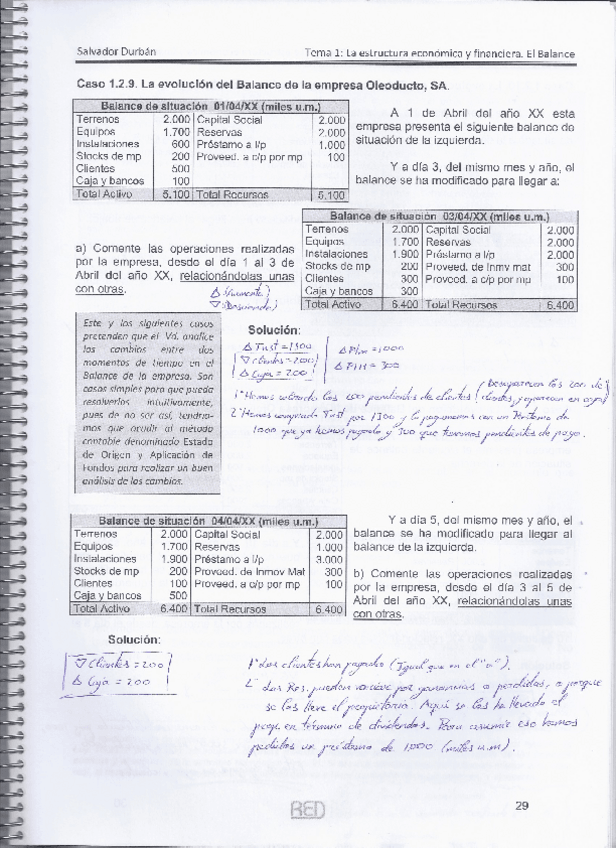 Salvador Durbán Tema 1: La estructura económica y financiera. El Balance
Caso 1.2.9. La evolución del Balance de la empresa Oleoducto, SA.
Balance de situación 01/04/XX (miles u.m.)
Terrenos 2.000 Capital Social 2.000
Equipos 1.700 Reservas 2.000
Instalaciones 600 Préstamo a l/p 1.000
Stocks de mp 200 Proveed. a c/p por mp 100
Clientes 500
Caja y bancos 100
Total Activo 5.100 Total Recursos 5.100
A 1 de Abril del año XX esta
empresa presenta el siguiente balance de
situación de la izquierda.
Y a día 3, del mismo mes y año, el
balance se ha modificado para llegar a:
Balance de situación 03/04/XX (miles u.m.)
Terrenos 2.000 Capital Social 2.000
Equipos 1.700 Reservas 2.000
Instalaciones 1.900 Préstamo a l/p 2.000
Stocks de mp 200 Proveed. de Inmv mat 300
Clientes 300 Proveed. a c/p por mp 100
Caja y bancos 300
Total Activo 6.400 Total Recursos 6.400
a) Comente las operaciones realizadas
por la empresa, desde el día 1 al 3 de
Abril del año XX, relacionándolas unas
con otras.
Δ (Aumento)
∇ (Disminuido)
Este y los siguientes casos
pretenden que el Vd. analice
los cambios entre dos
momentos de tiempo en el
Balance de la empresa. Son
casos simples para que pueda
resolverlos intuitivamente,
pues de no ser así, tendría-
mos que acudir al método
contable denominado Estado
de Origen y Aplicación de
Fondos para realizar un buen
análisis de los cambios.
Solución:
Δ Inst = 1300
∇ Clientes = 200
Δ Caja = 200
Δ P l/p = 1000
= 300
(Desaparecen los 200 de
1º Hemos cobrado los 200 pendientes de clientes clientes, y aparecen en caja)
2º Hemos comprado Inst por 1300 y lo pagamos con un Préstamo de
1000 que ya hemos pagado y 300 que tenemos pendientes de pago.
Balance de situación 04/04/XX (miles u.m.)
Terrenos 2.000 Capital Social 2.000
Equipos 1.700 Reservas 1.000
Instalaciones 1.900 Préstamo a l/p 3.000
Stocks de mp 200 Proveed. de Inmov Mat 300
Clientes 100 Proveed. a c/p por mp 100
Caja y bancos 500
Total Activo 6.400 Total Recursos 6.400
Y a día 5, del mismo mes y año, el
balance se ha modificado para llegar al
balance de la izquierda.
b) Comente las operaciones realizadas
por la empresa, desde el día 3 al 5 de
Abril del año XX, relacionándolas unas
con otras.
Solución:
∇ Clientes = 200
Δ Caja = 200
1º Los clientes han pagado (Igual que en el "a").
2º Las Res. pueden variar por ganancias o perdidas, o porque
se las lleve el propietario. Aquí se las ha llevado el
prop. en término de dividendos. Para asumir eso hemos
pedido un préstamo de 1.000 (miles u.m).
RED
29